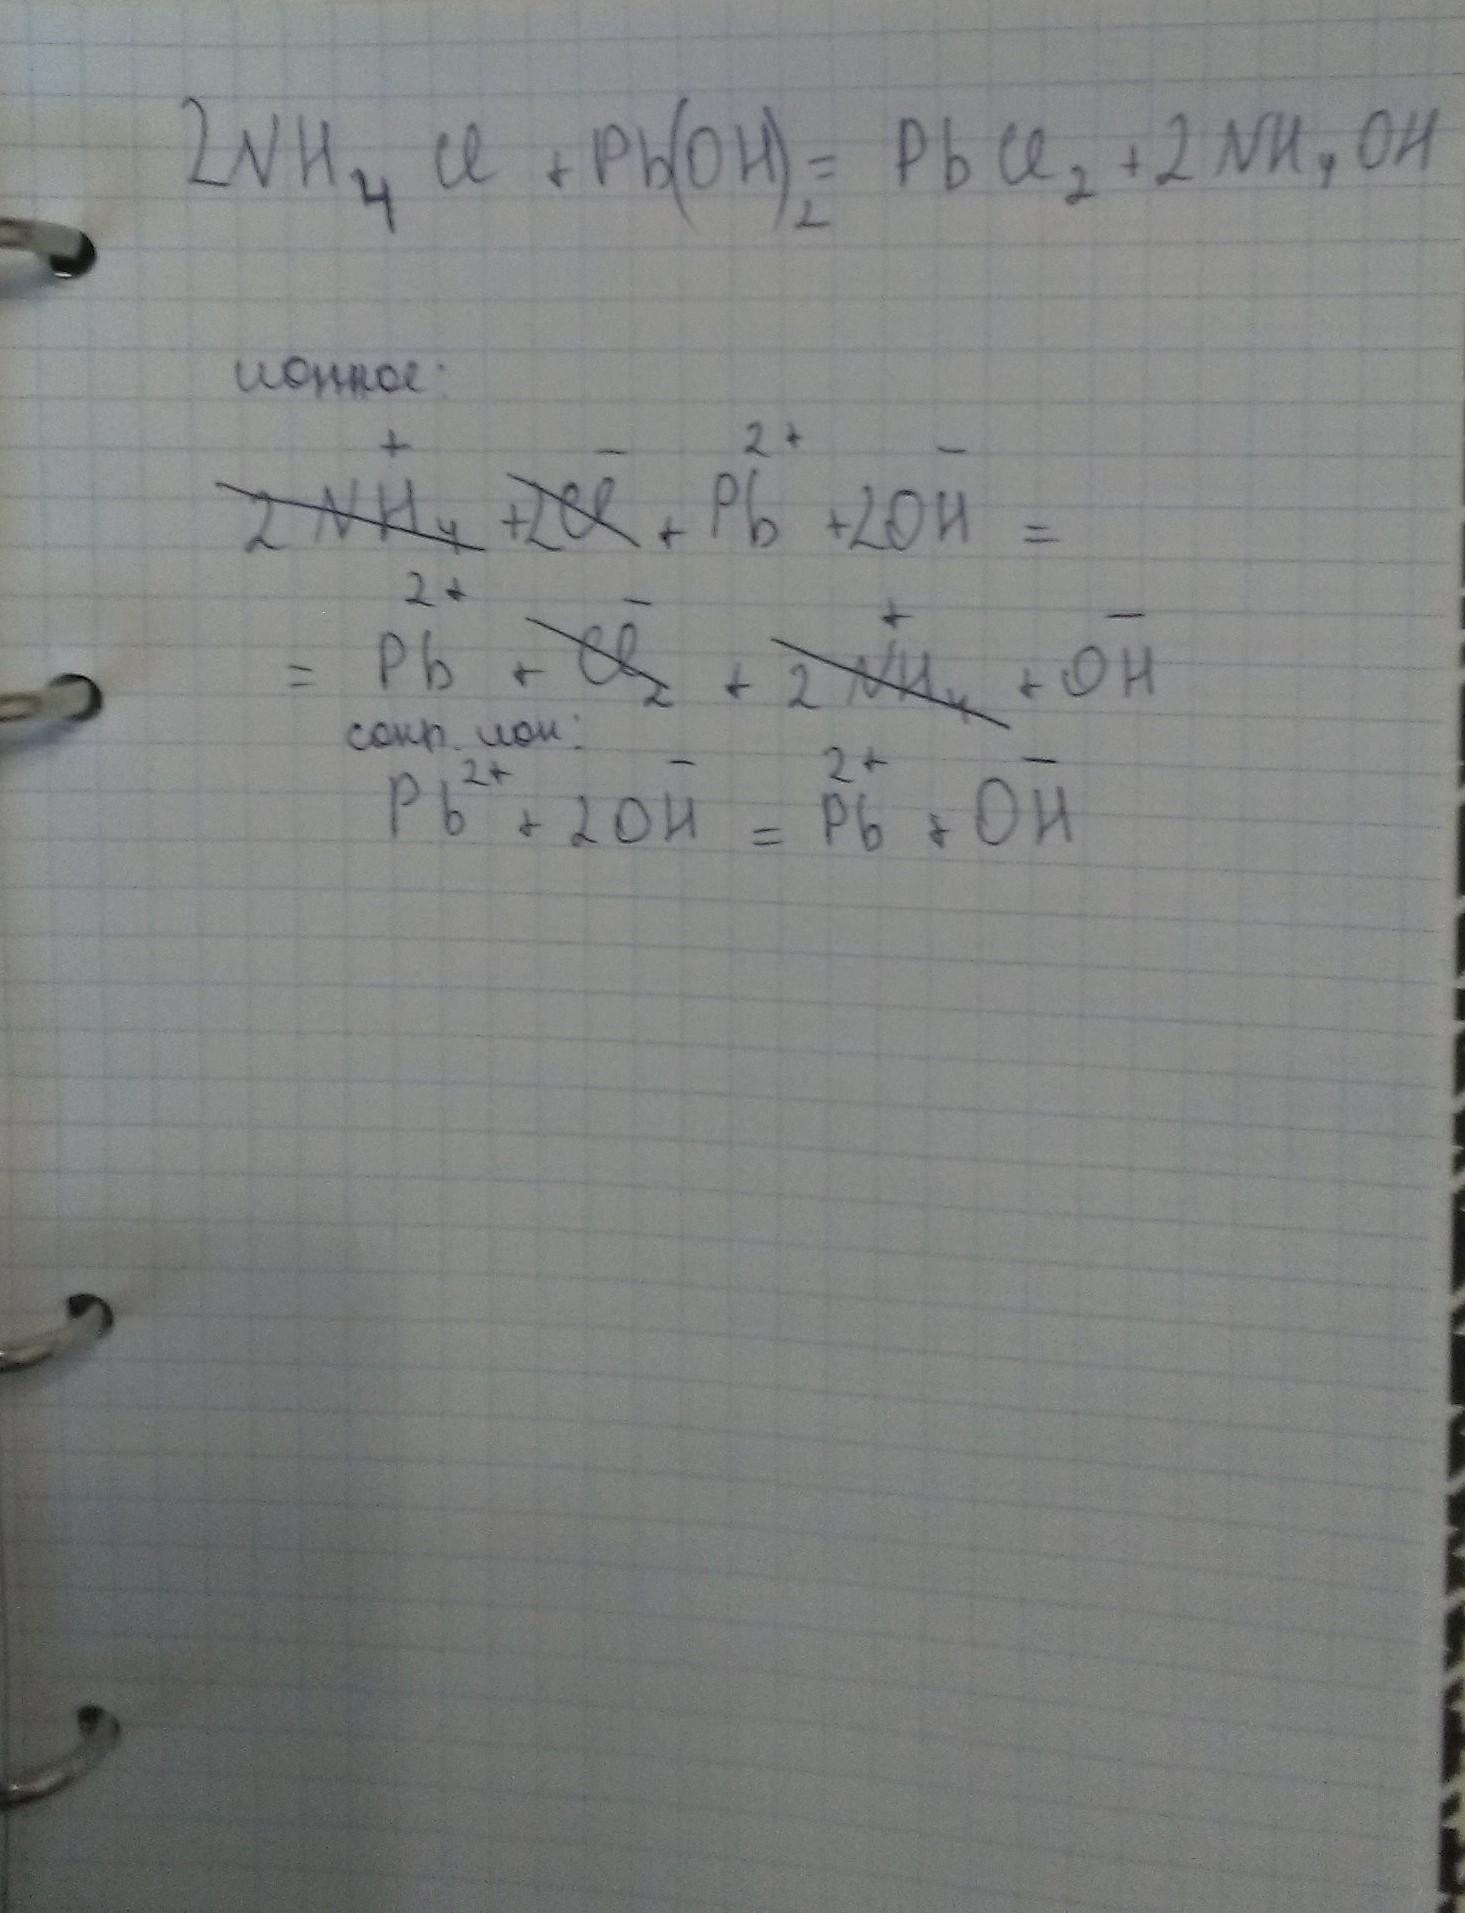 2NH₄Cl + Pb(OH)₂ = PbCl₂ + 2NH₄OH
ионное:
2NH₄⁺ + 2Cl⁻ + Pb²⁺ + 2OH⁻ =
= Pb²⁺ + Cl₂⁻ + 2NH₄⁺ + OH⁻
сокр. ион:
Pb²⁺ + 2OH⁻ = Pb²⁺ + OH⁻